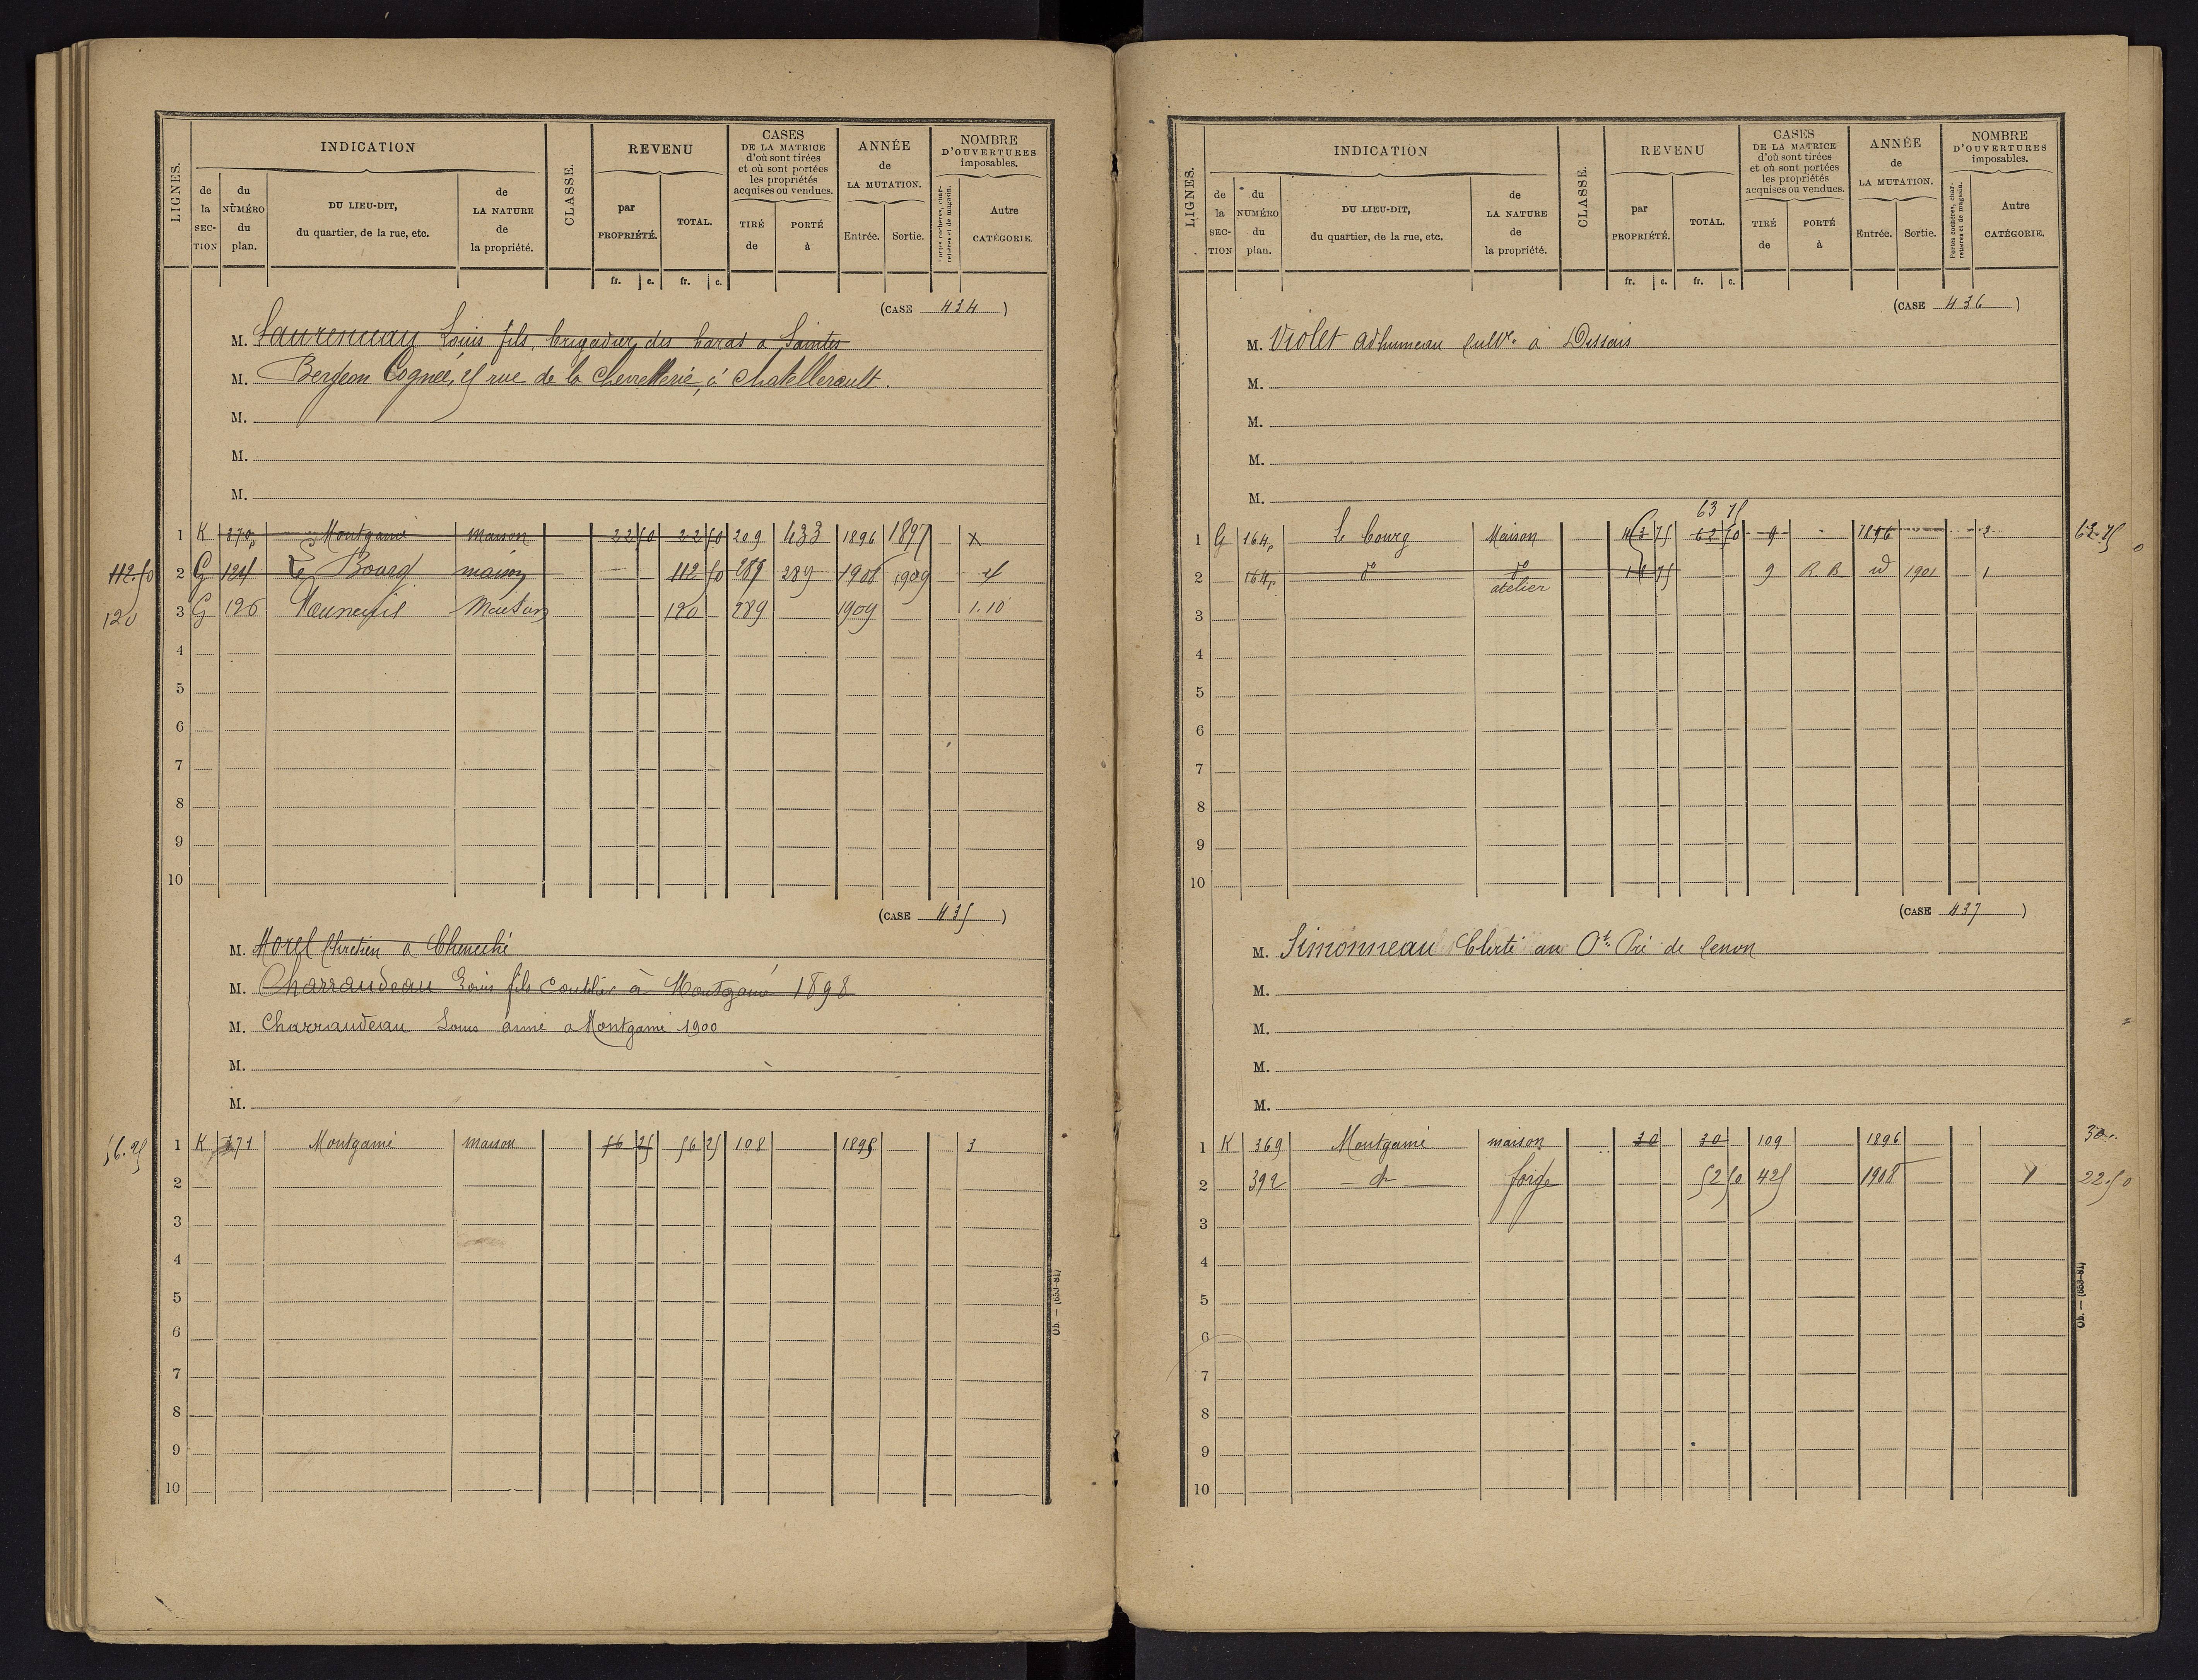 LIGNES.
INDICATION
de la SECTION
du NUMÉRO du plan.
DU LIEU-DIT, du quartier, de la rue, etc.
de LA NATURE de la propriété.
CLASSE.
REVENU
par PROPRIÉTÉ.
TOTAL.
fr. c. fr. c.
CASES DE LA MATRICE d'où sont tirées et où sont portées les propriétés acquises ou vendues.
TIRÉ de
PORTÉ à
ANNÉE de LA MUTATION.
Entrée. Sortie.
NOMBRE D'OUVERTURES imposables.
Portes cochères, charretières et de magasin.
Autre CATÉGORIE.
(CASE 434)
M. Laurenceau Louis fils, brigadier des haras a Saintes
M. Bergeon Cognée, rue de la Chevretterie, à Chatellerault.
M.
M.
M.
1 K 370p Montgamé Maison 22 50 22 50 209 433 1896 1897 X
112.50 2 G 124 Le Bourg maison 112 50 287 289 1908 1909 4
120 3 G 126 Maison 120 289 1909 1.10
4
5
6
7
8
9
10
(CASE 435)
M. Morel Chretien a Cheneché
M. Charraudeau Louis fils Coutelier à Montgamé 1898
M. Charraudeau Louis ainé a Montgamé 1900
M.
M.
56.25 1 K 371 Montgamé maison 56 25 56 25 108 1898 3
2
3
4
5
6
7
8
9
10
Ob. — (653-81)
LIGNES.
INDICATION
de la SECTION
du NUMÉRO du plan.
DU LIEU-DIT, du quartier, de la rue, etc.
de LA NATURE de la propriété.
CLASSE.
REVENU
par PROPRIÉTÉ.
TOTAL.
fr. c. fr. c.
CASES DE LA MATRICE d'où sont tirées et où sont portées les propriétés acquises ou vendues.
TIRÉ de
PORTÉ à
ANNÉE de LA MUTATION.
Entrée. Sortie.
NOMBRE D'OUVERTURES imposables.
Portes cochères, charretières et de magasin.
Autre CATÉGORIE.
(CASE 436)
M. Violet adhumeau cultr. a Dissais
M.
M.
M.
M.
63 75
1 G 164p Le bourg Maison 43 75 62 50 9 1896 2 63.75
2 164p do do atelier 18 75 9 R. B id 1901 1
3
4
5
6
7
8
9
10
(CASE 437)
M. Simonneau Clerté au Pré de Cenon
M.
M.
M.
M.
1 K 369 Montgamé maison 30 30 109 1896 30
2 392 do forge 52 50 425 1908 1 22.50
3
4
5
6
7
8
9
10
Ob. — (653-81)